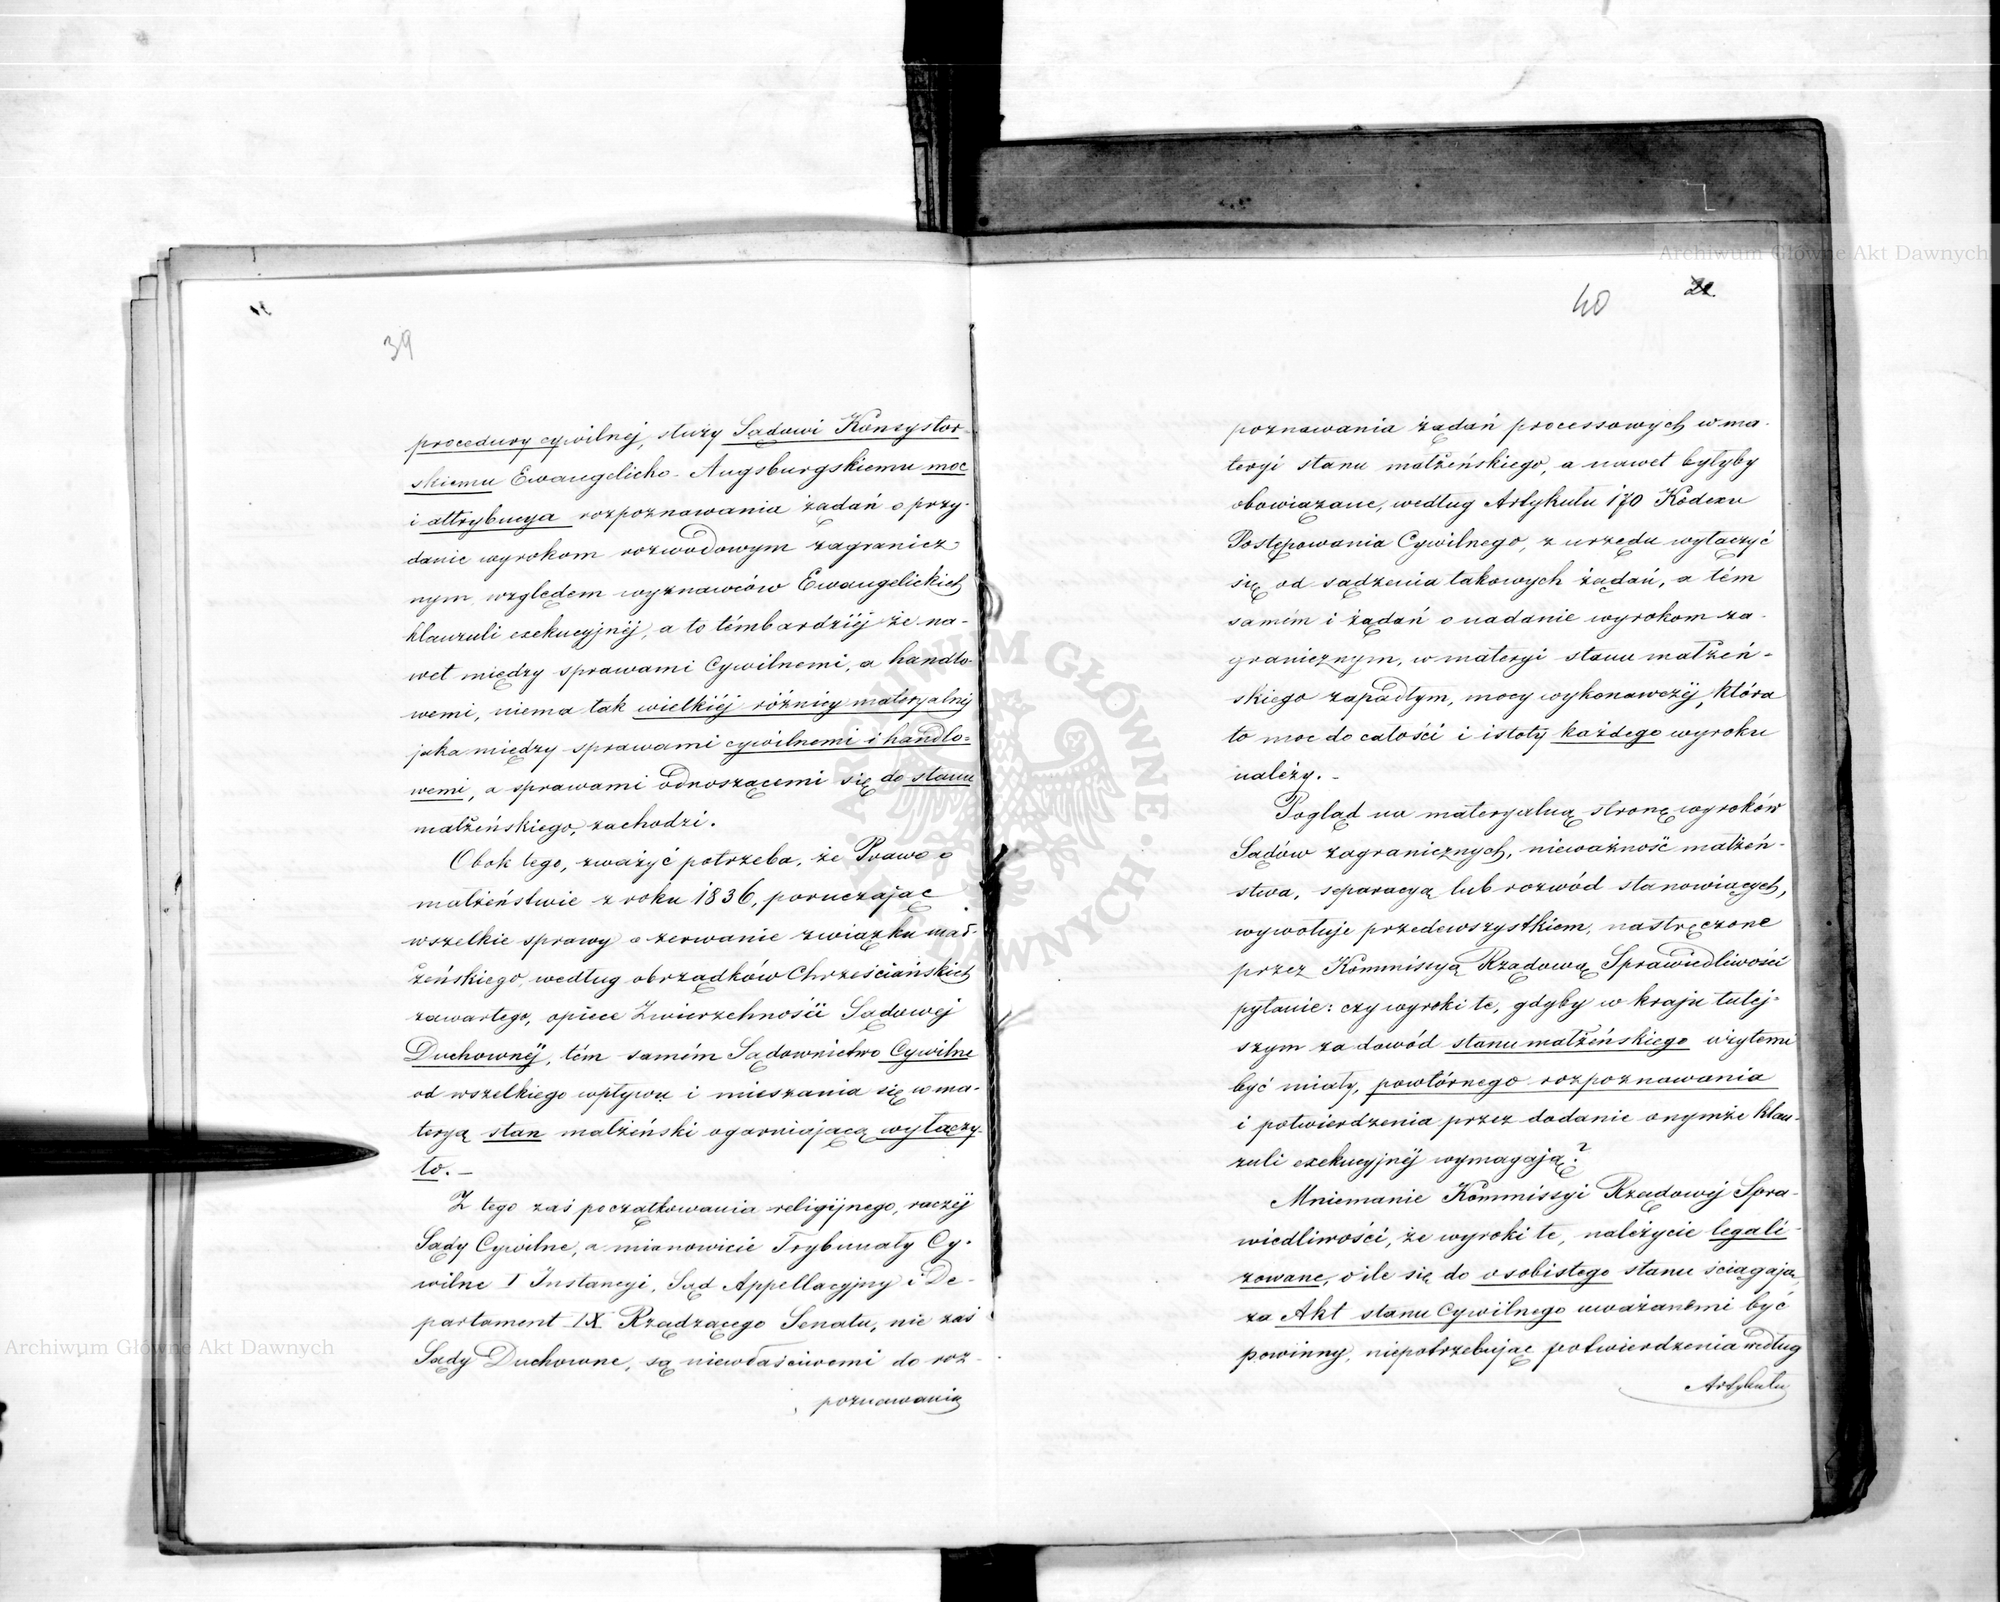 39
procedury cywilnej, służy Sądowi Konsystor-
skiemu Ewangelicko-Augsburgskiemu moc
i attrybucya rozpoznawania żądań o przy-
danie wyrokom rozwodowym zagranicz-
nym, względem wyznawców Ewangelickich
klauzuli exekucyjnéj, a to témbardziéj że na-
wet między sprawami Cywilnemi, a handlo-
wemi, niema tak wielkiéj różnicy materyalnéj
jaka między sprawami cywilnemi i handlo-
wemi, a sprawami odnoszącemi się do stanu
małżeńskiego, zachodzi.
Obok tego, zważyć potrzeba, że Prawo o
małżeństwie z roku 1836, poruczając
wszelkie sprawy o zerwanie związku mał-
żeńskiego, według obrządków Chrześciańskich
zawartego, opiece Zwierzchności Sądowej
Duchownéj, tém samém Sądownictwo Cywilne
od wszelkiego wpływu i mieszania się w ma-
teryą stan małżeński ogarniającą wyłączy-
ło.-
Z tego zaś początkowania religijnego, raczéj
Sądy Cywilne, a mianowicie Trybunały Cy-
wilne I Instancyi, Sąd Appellacyjny i De-
partament IX Rządzącego Senatu, nie zaś
Sądy Duchowne, są niewłaściwemi do roz-
poznawania
40
22.
poznawania żądań processowych w ma-
teryi stanu małżeńskiego, a nawet byłyby
obowiązane, według Artykułu 170 Kodexu
Postępowania Cywilnego, z urzędu wyłączyć
się od sądzenia takowych żądań, a tém
samém i żądań o nadanie wyrokom za-
granicznym, w materyi stanu małżeń-
skiego zapadłym, mocy wykonawczéj, która
to moc do całości i istoty każdego wyroku
należy.-
Pogląd na materyalną stronę wyroków
Sądów zagranicznych, nieważność małżeń-
stwa, separacyą lub rozwód stanowiących,
wywołuje przedewszystkiem, nastręczone
przez Kommissyą Rządową Sprawiedliwości
pytanie: czy wyroki te, gdyby w kraju tutej-
szym za dowód stanu małżeńskiego użytemi
być miały, powtórnego rozpoznawania
i potwierdzenia przez dodanie onymże klau-
zuli exekucyjnéj wymagają?
Mniemanie Kommissyi Rządowéj Spra-
wiedliwości, że wyroki te, należycie legali-
zowane, o ile się do osobistego stanu ściągają,
za Akt stanu Cywilnego uważanemi być
powinny, niepotrzebując potwierdzenia według
Artykułu
Archiwum Główne Akt Dawnych
Archiwum Główne Akt Dawnych